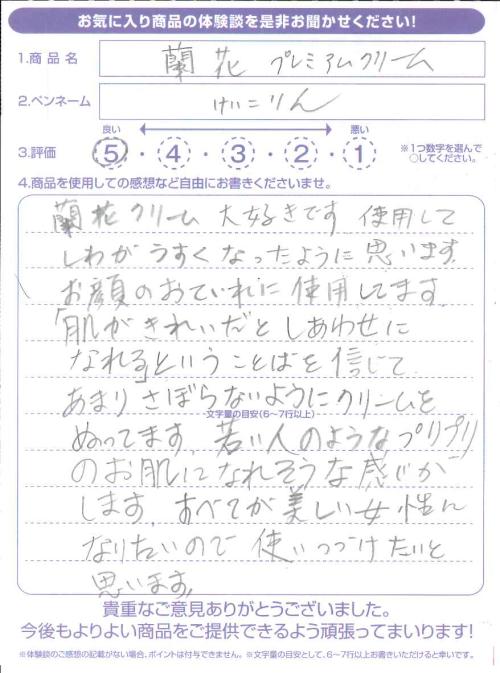 お気に入り商品の体験談を是非お聞かせください!
1.商品名 蘭花 プレミアムクリーム
2.ペンネーム けいこりん
良い 悪い
3.評価 5・4・3・2・1 ※1つ数字を選んで
○してください。
4.商品を使用しての感想など自由にお書きくださいませ。
蘭花クリーム 大好きです 使用して
しわが うすく なったように 思います。
お顔のおていれに 使用してます。
「肌がきれいだと しあわせに
なれる」ということばを信じて
あまり さぼらないようにクリームを
文字量の目安(6~7行以上)
ぬってます。若い人のようなプリプリ
のお肌になれそうな感じが
します。すべてが 美しい女性に
なりたいので 使いつづけたいと
思います。
貴重なご意見ありがとうございました。
今後もよりよい商品をご提供できるよう頑張ってまいります!
※体験談のご感想の記載がない場合、ポイントは付与できません。※文字量の目安として、6~7行以上お書きいただけると幸いです。